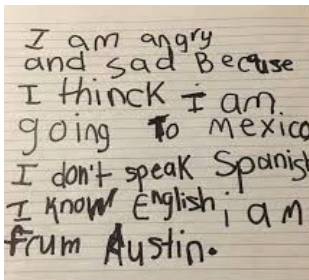 I am angry
and sad Because
I thinck I am
going To mexico
I don't speak Spanish
I Know English i am
frum Austin.